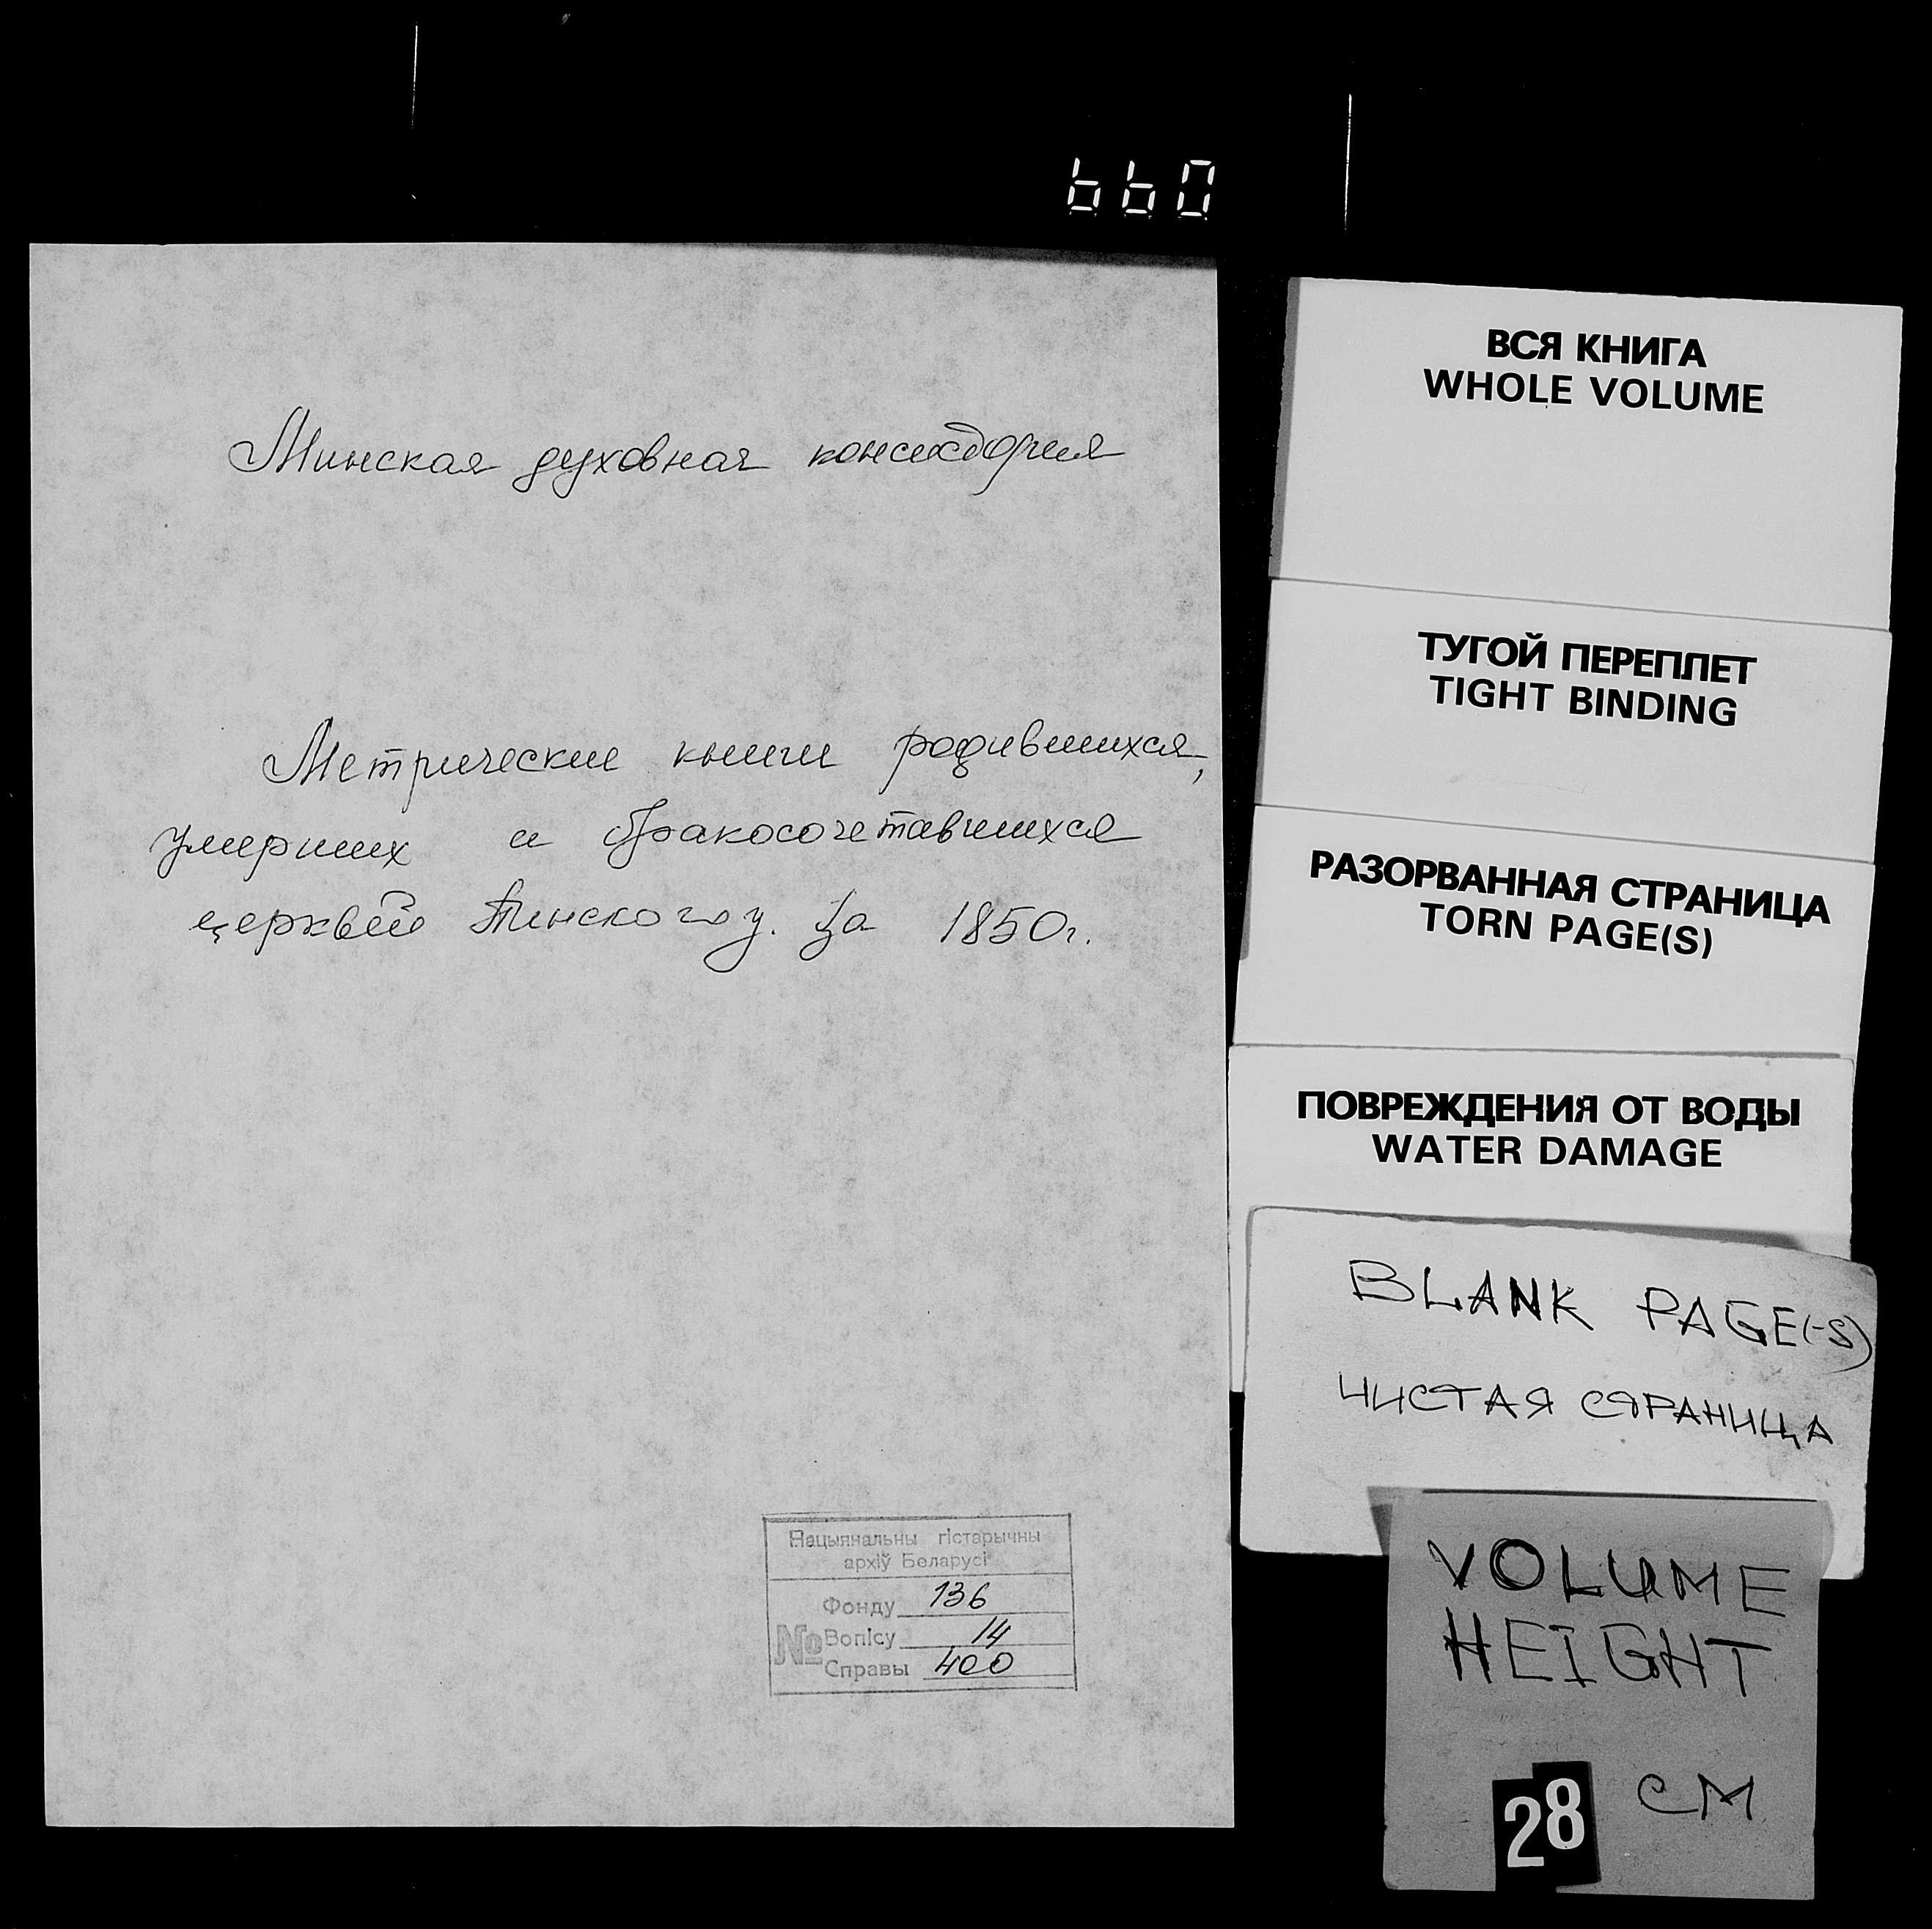 660
Минская духовная консистория
Метрические книги родившихся,
умерших и бракосочетавшихся
церквей Пинского у. за 1850г.
Нацыянальны гістарычны
архіў Беларусі
Фонду 136
№ Вопісу 14
Справы 400
ВСЯ КНИГА
WHOLE VOLUME
ТУГОЙ ПЕРЕПЛЕТ
TIGHT BINDING
РАЗОРВАННАЯ СТРАНИЦА
TORN PAGE(S)
ПОВРЕЖДЕНИЯ ОТ ВОДЫ
WATER DAMAGE
BLANK PAGE(-S)
ЧИСТАЯ СТРАНИЦА
VOLUME
HEIGHT
28 CM